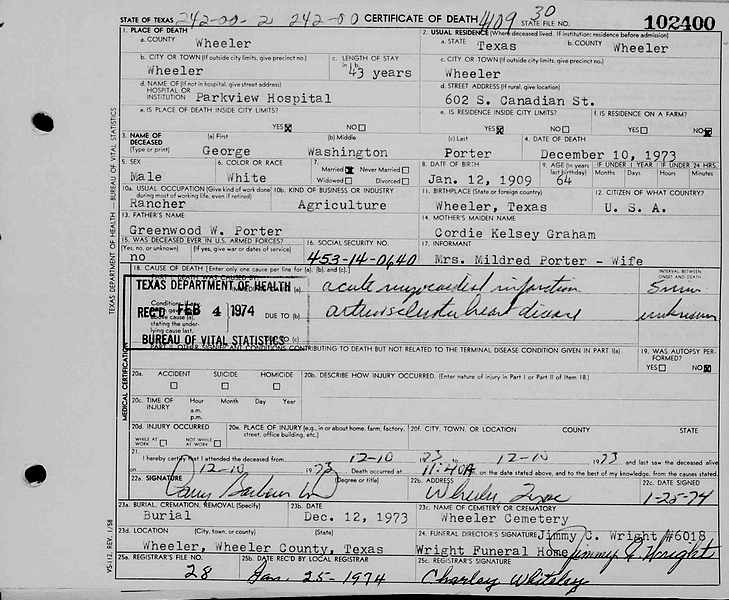 STATE OF TEXAS 242-00-2 242-00 CERTIFICATE OF DEATH 4109 30 STATE FILE NO. 102400
1. PLACE OF DEATH 2. USUAL RESIDENCE (Where deceased lived. If institution: residence before admission)
a. COUNTY Wheeler a. STATE Texas b. COUNTY Wheeler
b. CITY OR TOWN (If outside city limits, give precinct no.) c. LENGTH OF STAY in 1 b c. CITY OR TOWN (If outside city limits, give precinct no.)
Wheeler 43 years Wheeler
d. NAME OF (If not in hospital, give street address) HOSPITAL OR INSTITUTION Parkview Hospital d. STREET ADDRESS (If rural, give location) 602 S. Canadian St.
e. IS PLACE OF DEATH INSIDE CITY LIMITS? e. IS RESIDENCE INSIDE CITY LIMITS? f. IS RESIDENCE ON A FARM?
YES NO YES NO YES NO
3. NAME OF DECEASED (Type or print) (a) First (b) Middle (c) Last 4. DATE OF DEATH
George Washington Porter December 10, 1973
5. SEX 6. COLOR OR RACE 7. Married Never Married Widowed Divorced 8. DATE OF BIRTH 9. AGE (In years last birthday) IF UNDER 1 YEAR Months Days IF UNDER 24 HRS. Hours Minutes
Male White Jan. 12, 1909 64
10a. USUAL OCCUPATION (Give kind of work done during most of working life, even if retired) 10b. KIND OF BUSINESS OR INDUSTRY 11. BIRTHPLACE (State or foreign country) 12. CITIZEN OF WHAT COUNTRY?
Rancher Agriculture Wheeler, Texas U. S. A.
13. FATHER'S NAME 14. MOTHER'S MAIDEN NAME
Greenwood W. Porter Cordie Kelsey Graham
15. WAS DECEASED EVER IN U.S. ARMED FORCES? 16. SOCIAL SECURITY NO. 17. INFORMANT
(Yes, no, or unknown) (If yes, give war or dates of service)
no 453-14-0640 Mrs. Mildred Porter - Wife
18. CAUSE OF DEATH [Enter only one cause per line for (a), (b), and (c).] INTERVAL BETWEEN ONSET AND DEATH
TEXAS DEPARTMENT OF HEALTH (a) acute myocardial infarction 5 min
REC'D FEB 4 1974 DUE TO (b) arteriosclerotic heart disease unknown
stating the underlying cause last.
BUREAU OF VITAL STATISTICS (c)
PART II. OTHER SIGNIFICANT CONDITIONS CONTRIBUTING TO DEATH BUT NOT RELATED TO THE TERMINAL DISEASE CONDITION GIVEN IN PART I(a) 19. WAS AUTOPSY PERFORMED?
YES NO
20a. ACCIDENT SUICIDE HOMICIDE 20b. DESCRIBE HOW INJURY OCCURRED. (Enter nature of injury in Part I or Part II of Item 18.)
20c. TIME OF INJURY Hour a.m. p.m. Month Day Year
20d. INJURY OCCURRED WHILE AT WORK NOT WHILE AT WORK 20e. PLACE OF INJURY (e.g., in or about home, farm, factory, street, office building, etc.) 20f. CITY, TOWN, OR LOCATION COUNTY STATE
21. I hereby certify that I attended the deceased from 12-10 1973 to 12-10 1973 and last saw the deceased alive
on 12-10 1973 Death occurred at 11:40A on the date stated above, and to the best of my knowledge, from the causes stated.
22a. SIGNATURE (Degree or title) 22b. ADDRESS 22c. DATE SIGNED
Wheeler Texas 1-25-74
23a. BURIAL, CREMATION, REMOVAL (Specify) 23b. DATE 23c. NAME OF CEMETERY OR CREMATORY
Burial Dec. 12, 1973 Wheeler Cemetery
23d. LOCATION (City, town, or county) (State) 24. FUNERAL DIRECTOR'S SIGNATURE Jimmy C. Wright #6018
Wheeler, Wheeler County, Texas Wright Funeral Home Jimmy C. Wright
25a. REGISTRAR'S FILE NO. 25b. DATE REC'D BY LOCAL REGISTRAR 25c. REGISTRAR'S SIGNATURE
28 Jan. 25-1974 Charley Whiteley
TEXAS DEPARTMENT OF HEALTH — BUREAU OF VITAL STATISTICS
MEDICAL CERTIFICATION
VS-112 REV. 1/58